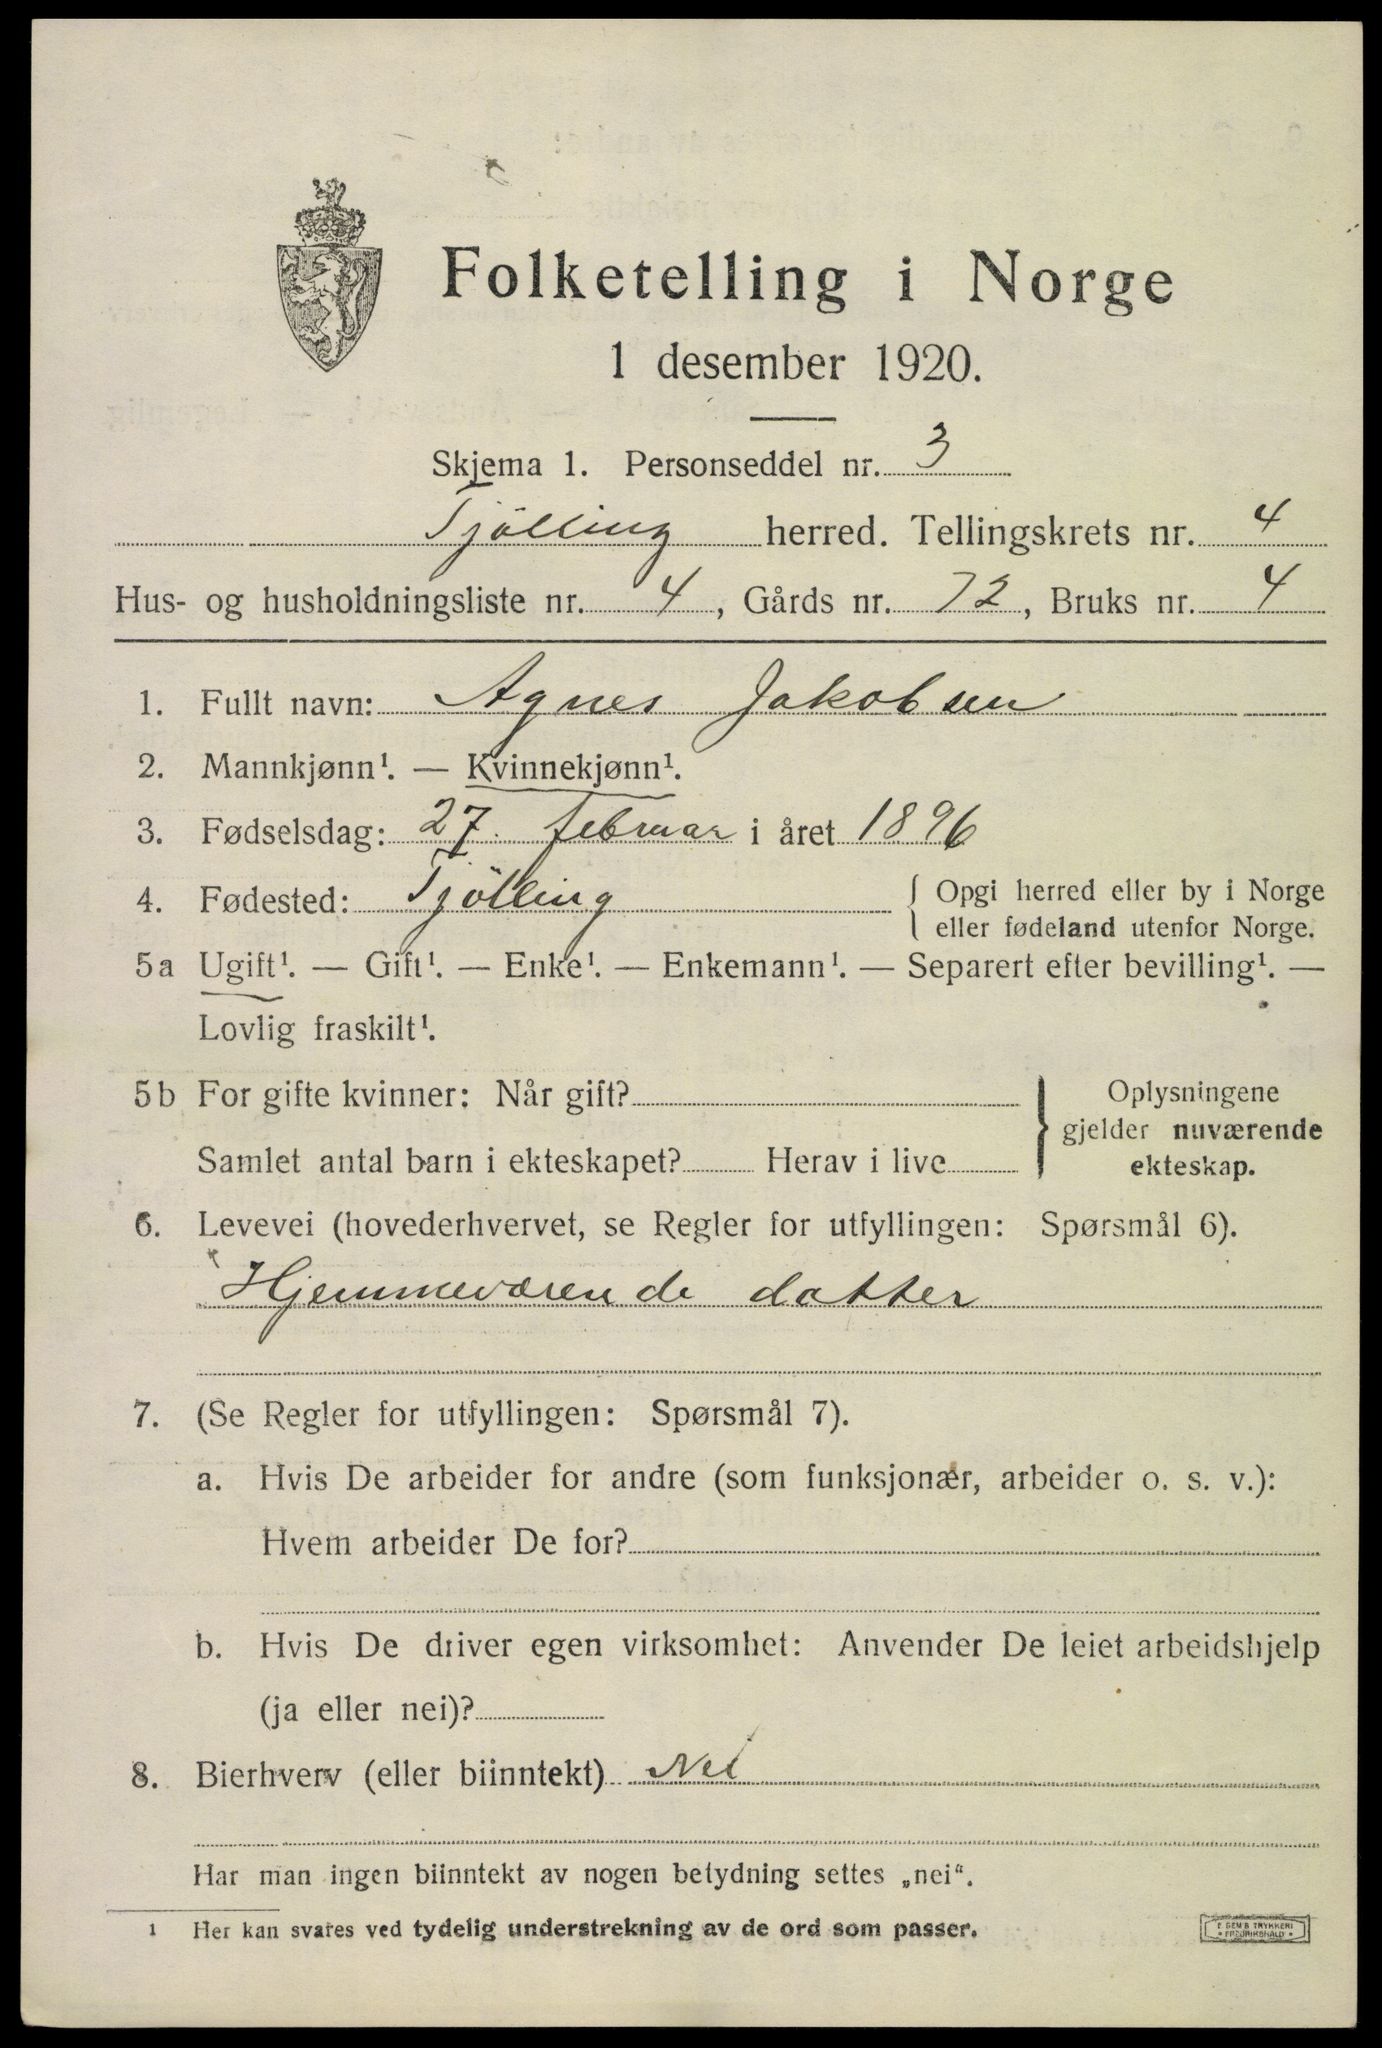 Folketelling i Norge
1 desember 1920.
Skjema 1. Personseddel nr. 3
Tjölling herred. Tellingskrets nr. 4
Hus- og husholdningsliste nr. 4, Gårds nr. 72, Bruks nr. 4
1. Fullt navn: Agnes Jakobsen
2. Mannkjønn¹. — Kvinnekjønn¹.
3. Fødselsdag: 27. februar i året 1896
4. Fødested: Tjölling { Opgi herred eller by i Norge
eller fødeland utenfor Norge.
5a Ugift¹. — Gift¹. — Enke¹. — Enkemann¹. — Separert efter bevilling¹. —
Lovlig fraskilt¹.
5b For gifte kvinner: Når gift?
Samlet antal barn i ekteskapet? Herav i live
} Oplysningene
gjelder nuværende
ekteskap.
6. Levevei (hovederhvervet, se Regler for utfyllingen: Spørsmål 6).
Hjemmeværende datter
7. (Se Regler for utfyllingen: Spørsmål 7).
a. Hvis De arbeider for andre (som funksjonær, arbeider o. s. v.):
Hvem arbeider De for?
b. Hvis De driver egen virksomhet: Anvender De leiet arbeidshjelp
(ja eller nei)?
8. Bierhverv (eller biinntekt) Nei
Har man ingen biinntekt av nogen betydning settes „nei“.
1 Her kan svares ved tydelig understrekning av de ord som passer.
E. SEM'S TRYKKERI
• FREDRIKSHALD •